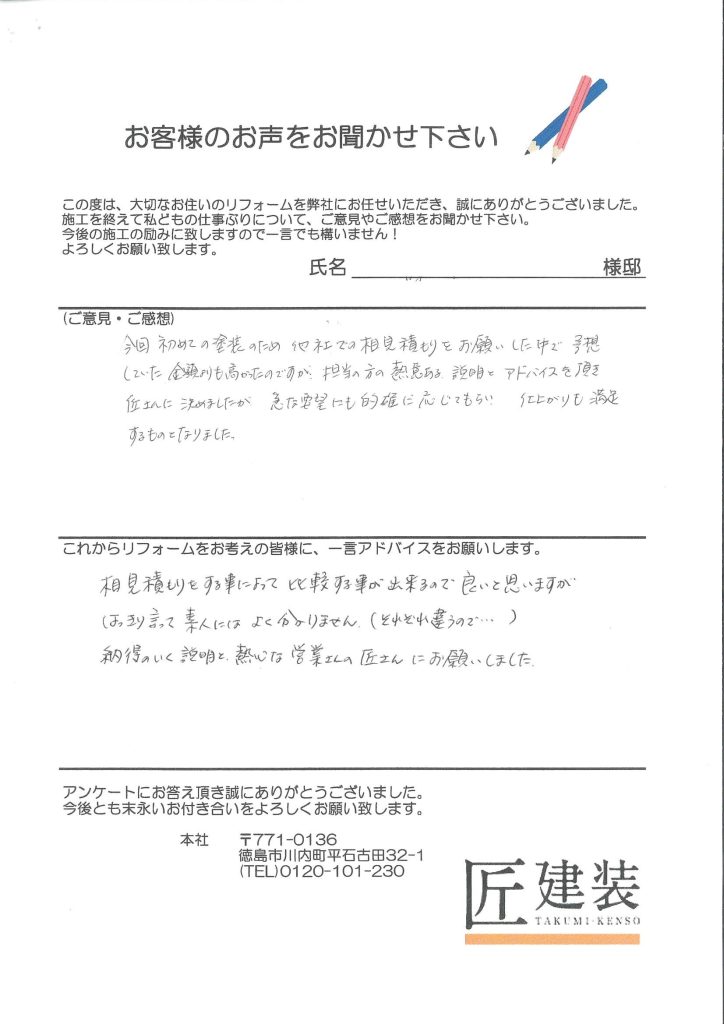 お客様のお声をお聞かせ下さい
この度は、大切なお住いのリフォームを弊社にお任せいただき、誠にありがとうございました。
施工を終えて私どもの仕事ぶりについて、ご意見やご感想をお聞かせ下さい。
今後の施工の励みに致しますので一言でも構いません！
よろしくお願い致します。
氏名 様邸
(ご意見・ご感想)
今回 初めての塗装のため 他社での相見積もりをお願いした中で 予想
していた 金額よりも高かったのですが、担当の方の熱意ある 説明と アドバイスを頂き
匠さんに 決めましたが 急な要望にも的確に応じてもらい 仕上がりも 満足
するものとなりました。
これからリフォームをお考えの皆様に、一言アドバイスをお願いします。
相見積もりをする事によって 比較する事が出来るので 良いと思いますが
はっきり言って 素人には よく分かりません。(それぞれ違うので…)
納得のいく 説明と、熱心な営業さんの 匠さん にお願いしました。
アンケートにお答え頂き誠にありがとうございました。
今後とも末永いお付き合いをよろしくお願い致します。
本社 〒771-0136
徳島市川内町平石古田32-1
(TEL)0120-101-230
匠建装
TAKUMI-KENSO